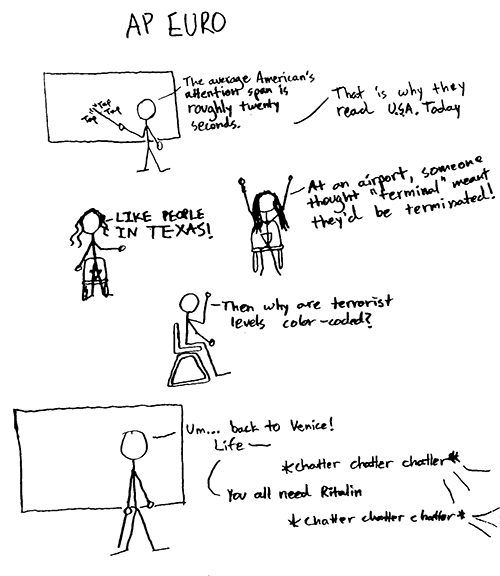 AP EURO
Tap Tap Tap
The average American's
attention span is
roughly twenty
seconds.
That is why they
read U.S.A. Today
At an airport, someone
thought "terminal" meant
they'd be terminated!
LIKE PEOPLE
IN TEXAS!
Then why are terrorist
levels color-coded?
Um... back to Venice!
Life —
*chatter chatter chatter*
You all need Ritalin
*chatter chatter chatter*